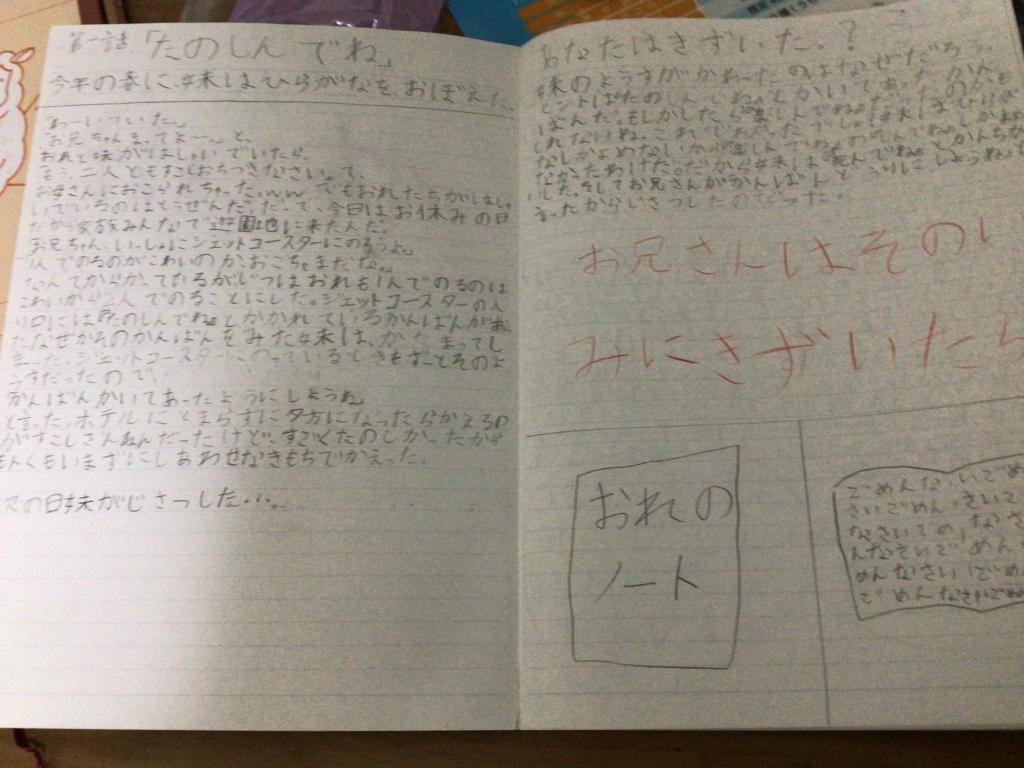 第一話「たのしんでね」
今年の春に、妹はひらがなを、おぼえた。
「わーいついた。」
「お兄ちゃんまってよー〜。」と、
おれと妹がはしゃいでいたら、
「もう、二人ともすこしおちつきなさい。」って、
お母さんにおこられちゃった。wwでもおれたちがはしゃ
いでいるのはとうぜんだ。だって、今日はお休みの日
だから家族みんなで遊園地に来たんだ。
「お兄ちゃん、いっしょにジェットコースターにのろうよ。」
「1人でのるのがこわいのか、おこちゃまだな。」
なんてからかっているがじつはおれも1人でのるのは
こわいから2人でのることにした。ジェットコースターの入
り口には『たのしんでね』とかかれているかんばんがあっ
たなぜかそのかんばんをみた妹は、かたまってし
まった、ジェットコースターにのっているときもずーとそのよ
うすだったので、
かんばんかいてあったようにしようね
と言った。ホテルにとまらずに夕方になったらかえるの
がすこしざんねんだったけど、すごくたのしかったから
もんくもいまずにしあわせなきもちでかえった。
次の日妹がじさつした・・・。
あなたはきずいた。?
妹のようすがかわったのはなぜだろう。
ヒントは『たのしんでね』とかいてあったかん
ばんだ。もしかしたら『楽しんでね』だったのかも
しれないね。これでわかったでしょ。妹はひらが
なしかよめないから『楽しんでね』の
なかったわけだ。だから妹は『死んでね』とかんちが
いした。そしてお兄さんがかんばんどうりにしようね」と
言ったからじさつしたのだった.
お兄さんはそのい
みにきずいたら
おれの
ノート
ごめんなさいごめ
さいごめんなさいご
なさいごめんなさ
んなさいごめん
めんなさいごめ
ごめんなさいごめ